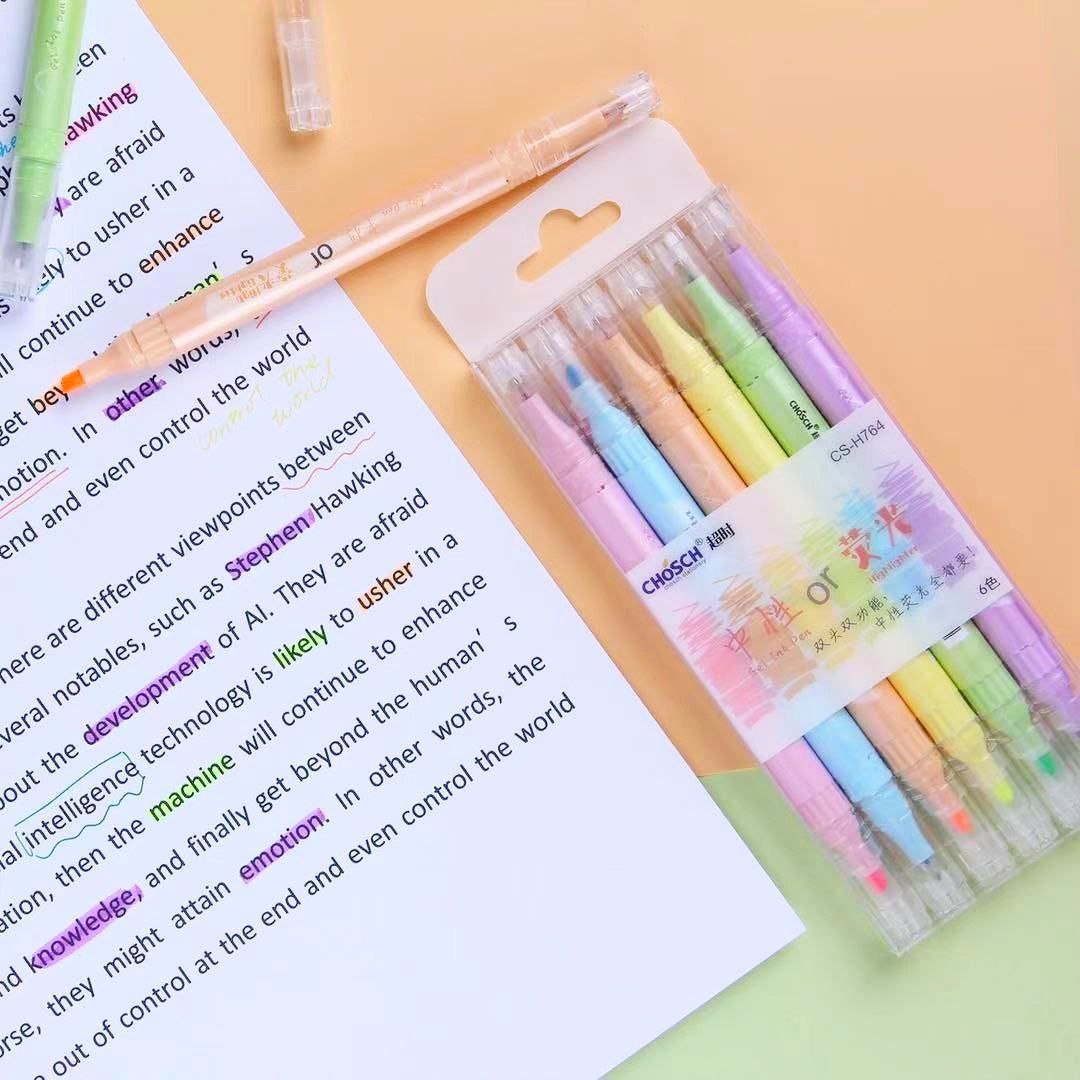 awking
are afraid
to usher in a
continue to enhance
s
get
In other words,
motion.
end and even control the world
control the
world
here are different viewpoints between
everal notables, such as Stephen Hawking
bout the development of AI. They are afraid
ial intelligence technology is likely to usher in a
ation, then the machine will continue to enhance
nd knowledge, and finally get beyond the human's
orse, they might attain emotion. In other words, the
out of control at the end and even control the world
or
CHOSCH® 超时
CS-H764
CHOSCH® 超时
chosch stationery
中性 or 荧光
Gel Ink Pen
Highlighter
双头双功能,
中性荧光全都要!
6色